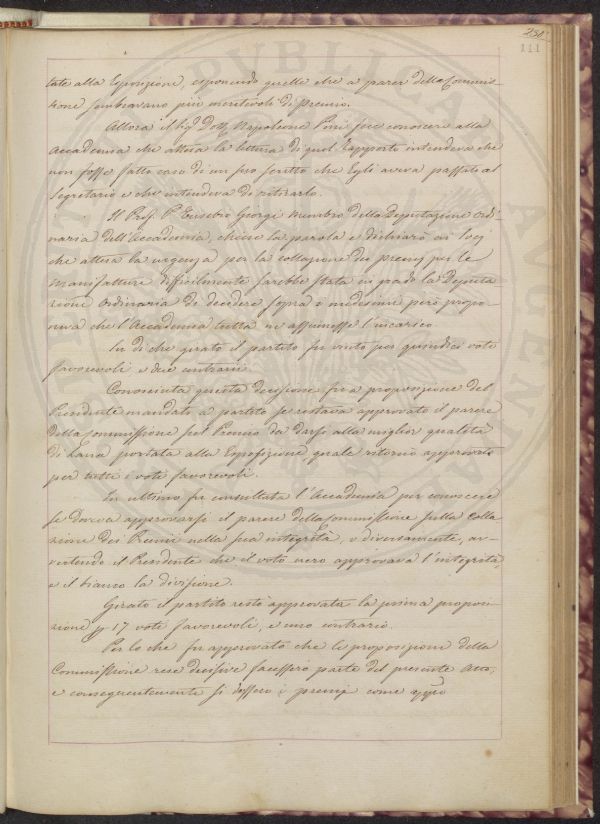 231
111
tate alla Esposizione, esponendo quelle che a parer della Commis-
zione sembravano più meritevoli di premio.
Allora il Sig. Dott. Napoleone Pini fece conoscere alla
Accademia che attesa la lettura di quel Rapporto intendeva che
non fosse fatto caso di un suo scritto che Egli aveva passato al
Segretario e che intendeva di ritirarlo.
Il Prof. P. Eusebio Giorgi Membro della Deputazione Ordi-
naria dell'Accademia, chiese la parola e dichiarò
che attesa la urgenza per la collazione dei premj per le
Manifatture difficilmente sarebbe stata in grado la Deputa-
zione Ordinaria di decidere sopra i medesimi però propo-
neva che l'Accademia tutta ne assumesse l'incarico.
In di che girato il partito fu vinto per quindici voti
favorevoli e due contrarii.
Conosciuta questa decisione fu a proposizione del
Presidente mandato a partito se restava approvato il parere
della Commissione sul Premio da darsi alla miglior qualità
di Lana portata alla Esposizione, quale ritornò approvato
per tutti i voti favorevoli.
In ultimo fu consultata l'Accademia per conoscere
se doveva approvarsi il parere della Commissione sulla Colla-
zione dei Premii nella sua integrità, o diversamente, av-
vertendo il Presidente che il voto nero approvava l'integrità,
e il bianco la divisione.
Girato il partito restò approvata la prima proposi-
zione p 17 voti favorevoli, e uno contrario.
Per lo che fu approvato che le proposizioni della
Commissione rese decisive facessero parte del presente Atto,
e conseguentemente si dassero i premj come appo